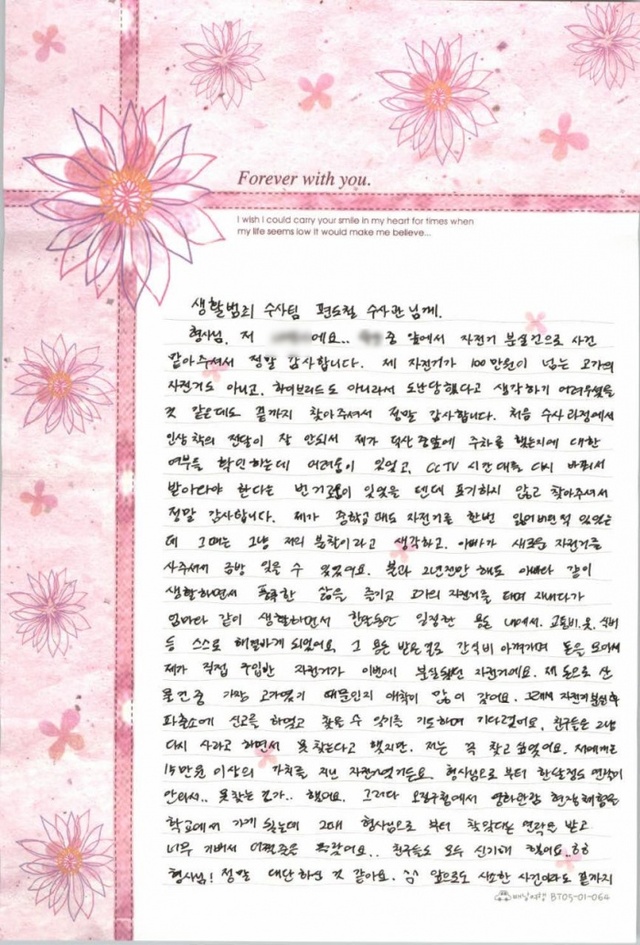 Forever with you.
I wish I could carry your smile in my heart for times when
my life seems low it would make me believe...
생활범죄 수사팀 편도철 수사관님께.
형사님, 저 에요.. 중 앞에서 자전거 분실건으로 사건
맡아주셔서 정말 감사합니다. 제 자전거가 100만원이 넘는 고가의
자전거도 아니고, 하이브리드도 아니라서 도난당했다고 생각하기 어려우셨을
것 같은데도 끝까지 찾아주셔서 정말 감사합니다. 처음 수사과정에서
인상착의 전달이 잘 안되서 제가 덕산중앞에 주차를 했는지에 대한
여부를 확인하는데 어려움이 있었고, CCTV 시간대를 다시 바꿔서
받아와야 한다는 번거로움이 있었을 텐데 포기하지 않고 찾아주셔서
정말 감사합니다. 제가 중학교때도 자전거를 한번 잃어버린적 있었는
데 그때는 그냥 저의 불찰이라고 생각하고, 아빠가 새로운 자전거를
사주셔서 금방 잊을 수 있었어요. 불과 2년전만 해도 아빠랑 같이
생활하면서 풍족한 삶을 즐기고 고가의 자전거를 타며 지내다가
엄마랑 같이 생활하면서 한달동안 일정한 용돈 내에서, 교통비, 옷, 식비
등 스스로 해결하게 되었어요. 그 용돈 받은걸로 간식비 아껴가며 돈을 모아서
제가 직접 구입한 자전거가 이번에 분실됐던 자전거에요. 제 돈으로 산
물건 중 가장 고가였기 때문인지 애착이 많이 갔어요. 그래서 자전거 분실후
파출소에 신고를 하였고 찾을 수 있기를 기도하며 기다렸어요. 친구들은 그냥
다시 사라고 하면서 못 찾는다고 했지만, 저는 꼭 찾고 싶었어요. 저에게는
15만원 이상의 가치를 지닌 자전거였거든요. 형사님으로 부터 한달정도 연락이
안와서.. 못찾는건가.. 했어요. 그러다 영화관람 현장체험을
학교에서 가게 됬는데 그때 형사님으로 부터 찾았다는 연락을 받고
너무 기뻐서 어쩔줄을 몰랐어요.. 친구들도 모두 신기해 했어요..ㅎㅎ
형사님! 정말 대단하신 것 같아요. ^^ 앞으로도 사소한 사건이라도 끝까지
배낭여행 BT05-01-064